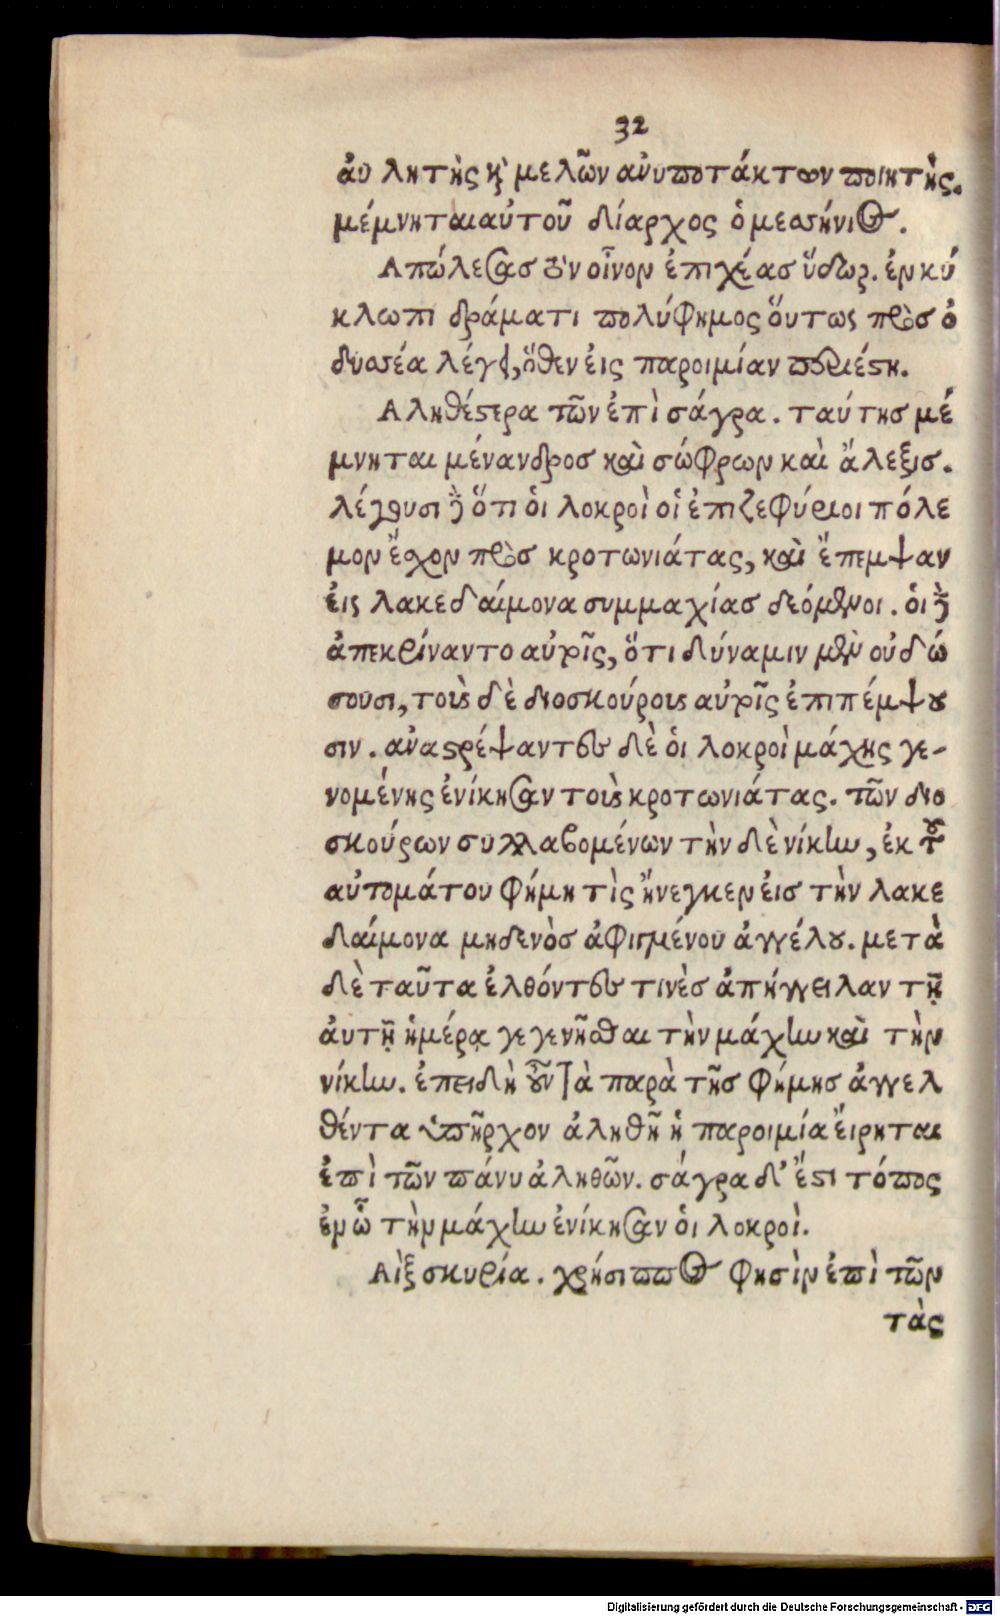 32
ἀυλητὴς κỳ μελῶν ανυποτάκτων ποιητὴς.
μέμνηται αὐτοῦ δίαρχος ὁ μεσήνιος.
Απώλεσας τὸν οἶνον ἐπιχέασ ὕδωρ. ἐν κύ
κλωπι δράματι πολύφημος ὅυτως πρὸσ ὀ
δυσέα λέγει, ὅθεν ἐις παροιμίαν περιέστη.
Αληθέστερα τῶν ἐπὶ σάγρα. ταύτησ μέ
μνηται μένανδροσ καὶ σώφρων καὶ ἄλεξισ.
λέγουσι δὲ ὅτι ὁι λοκροὶ οἱ ἐπιζεφύριοι πόλε
μον ἔχον πρὸσ κροτωνιάτας, καὶ ἔπεμψαν
ἐις λακεδαίμονα συμμαχίασ δεόμενοι. ὁι δὲ
ἀπεκρίναντο αὐτοῖς, ὅτι δύναμιν μὲν οὐ δώ
σουσι, τοὺς δὲ διοσκούρους αὐτοῖς ἐπιπέμψου
σιν. αναστρέψαντες δὲ ὁι λοκροὶ μάχης γε-
νομένης ἐνίκησαν τοὺς κροτωνιάτας. τῶν διο
σκούρων συλλαβομένων τὴν δὲ νίκην, ἐκ τοῦ
αὐτομάτου φήμη τὶς ἤνεγκεν ἐισ τὴν λακε
δαίμονα μηδενὸσ ἀφιγμένου ἀγγέλου. μετὰ
δὲ ταῦτα ἐλθόντες τινὲσ ἀπήγγειλαν τῇ
ἀυτῇ ἡμέρᾳ γεγενῆσθαι τὴν μάχην καὶ τὴν
νίκην. ἐπειδὴ οὖν τὰ παρὰ τῆσ φήμησ ἀγγελ
θέντα ὑπῆρχον ἀληθῆ ἡ παροιμία ἔιρηται
ἐπὶ τῶν πάνυ ἀληθῶν. σάγρα δ' ἔστι τόπος
ἐν ᾧ τὴν μάχην ἐνίκησαν ὁι λοκροὶ.
Αἲξ σκυρία. χρήσιππος φησὶν ἐπὶ τῶν
τὰς
Digitalisierung gefördert durch die Deutsche Forschungsgemeinschaft - DFG